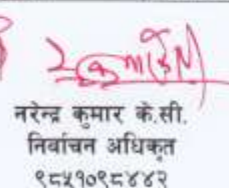 नरेन्द्र कुमार के.सी.
निर्वाचन अधिकृत
९८५१०९८४४२